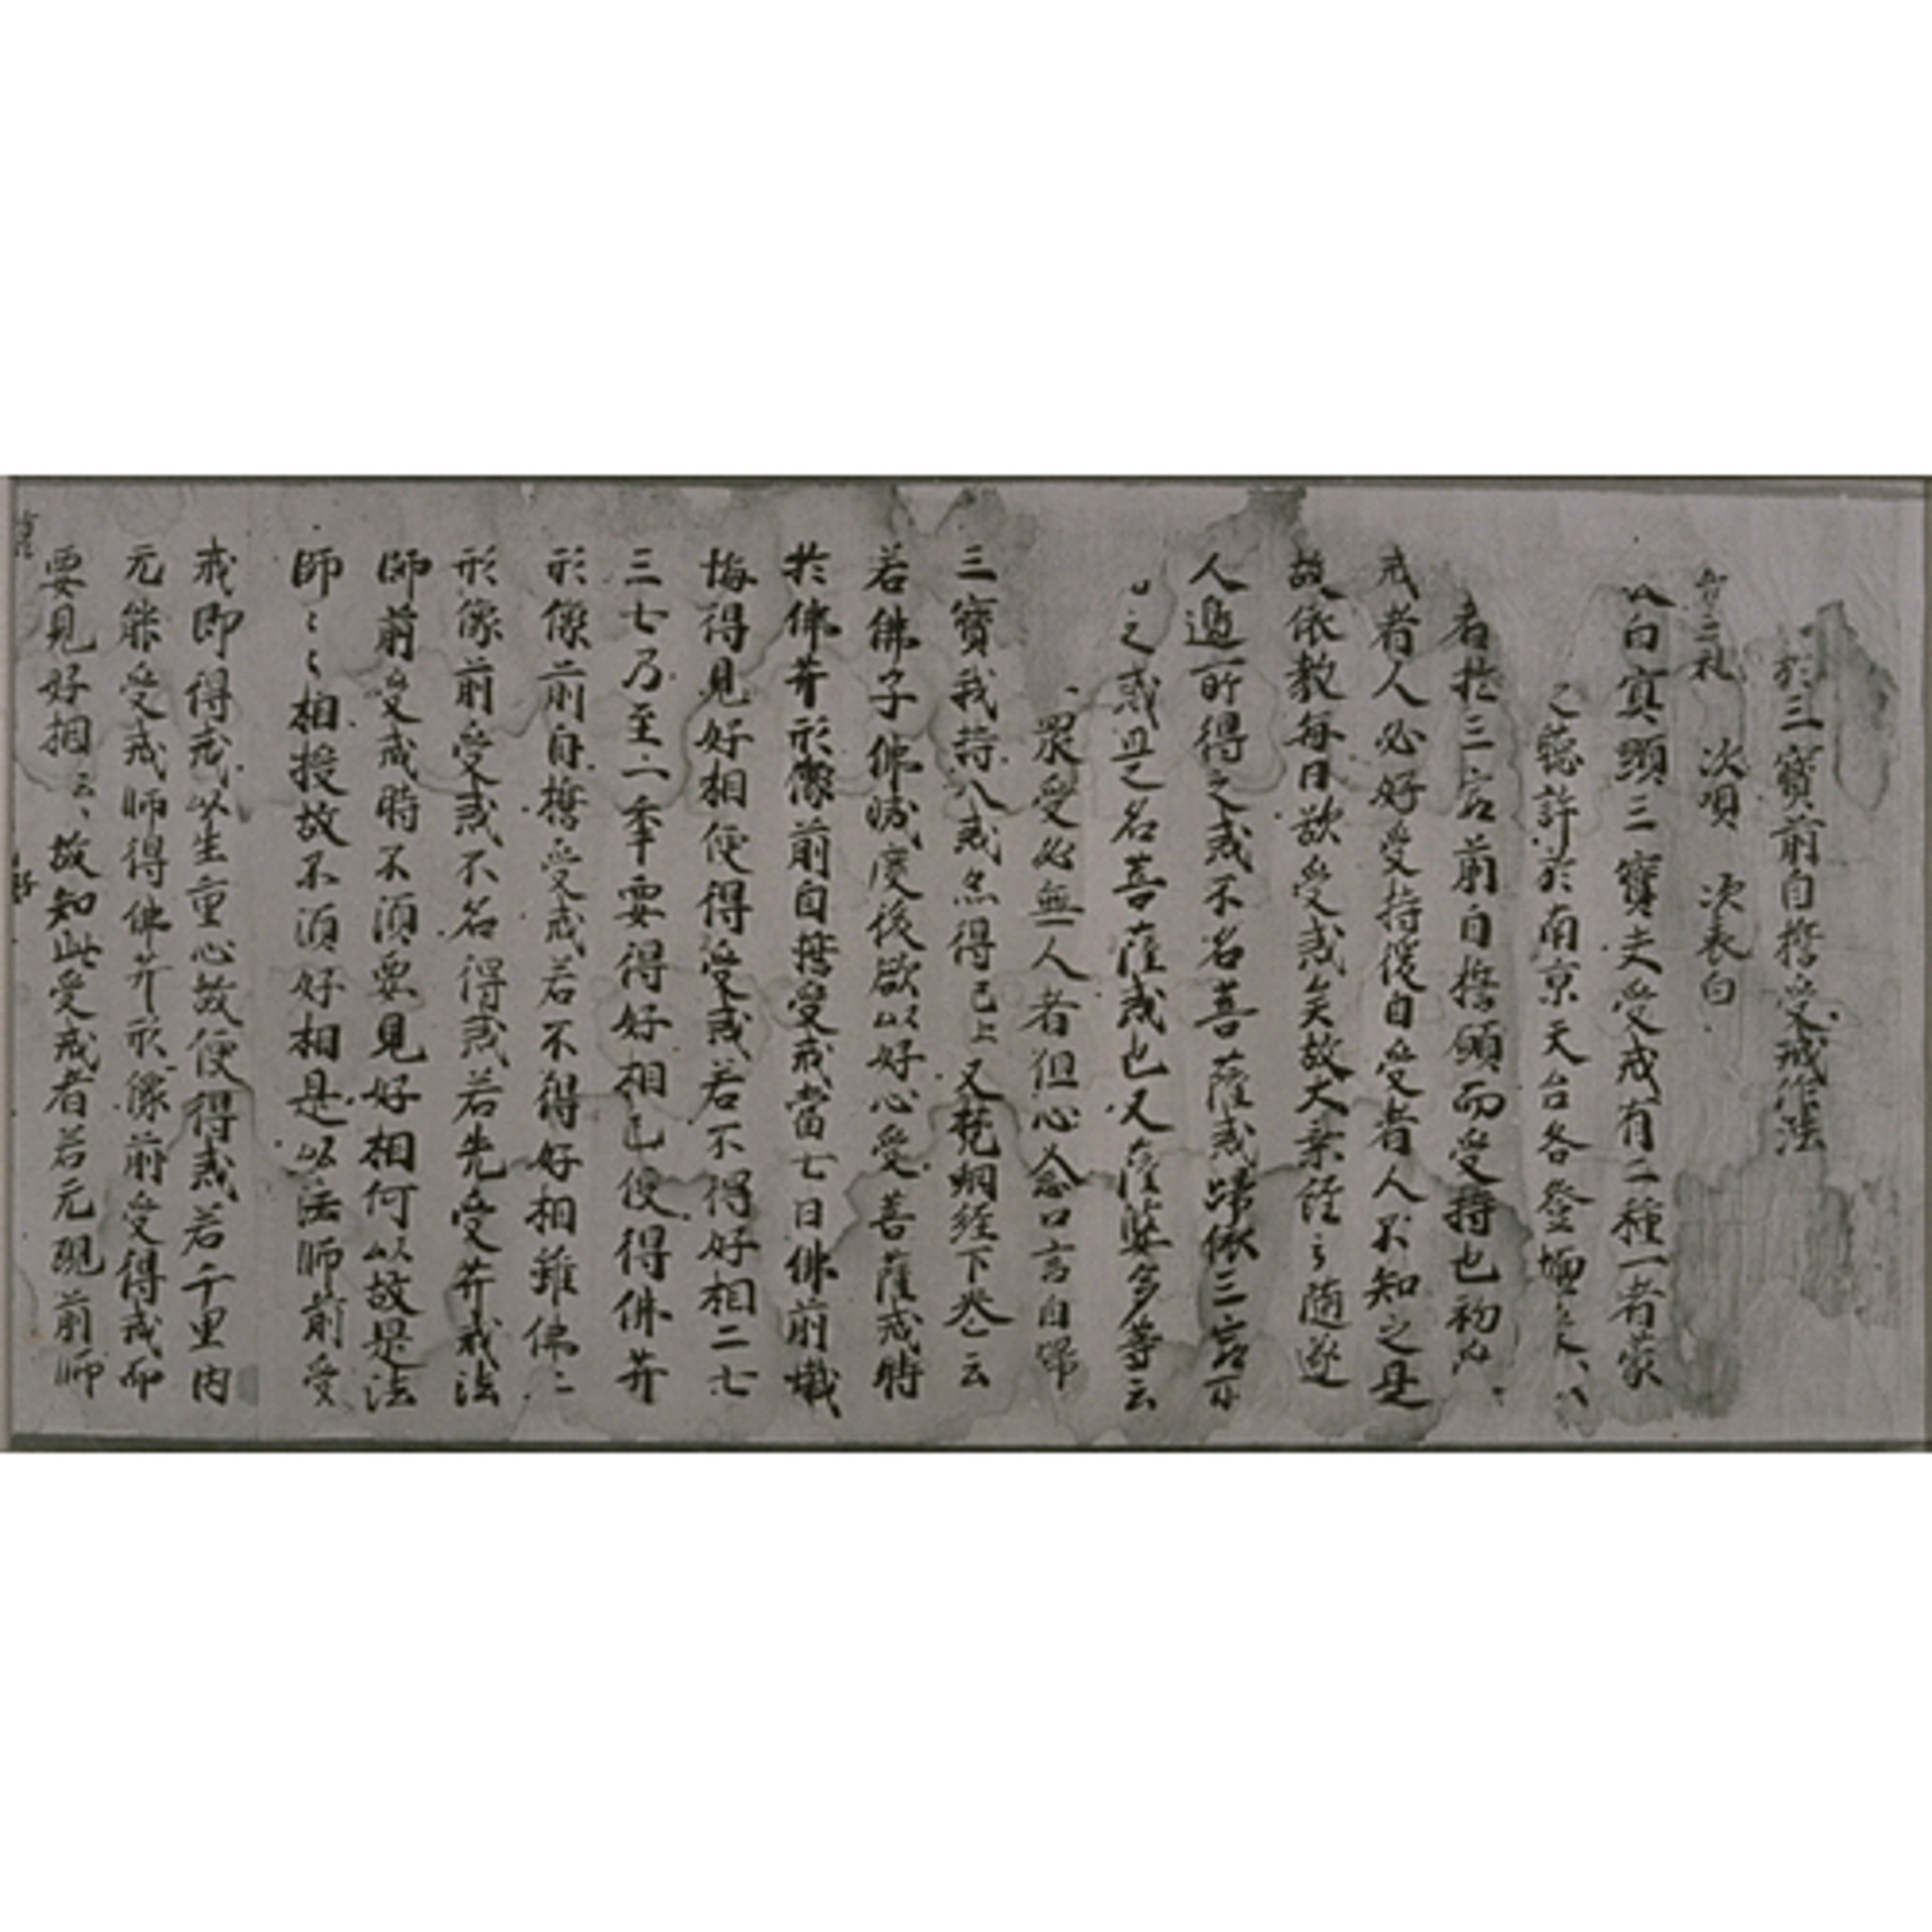 於三寶前自誓受戒作法
三礼 次唄 次表白
白冥顕三寶夫受戒有二種一者蒙
之聴許於南京天台各登壇
者於三宝前自誓願而受持也初
戒者人必好受持復自受者人不知之是
故依教毎日欲受戒矣故大乗経云随逐
人邊所得之戒不名菩薩戒歸依三宝所
之戒是名菩薩戒也又薩婆多等云
衆受必無人者但心念口言自歸
三寶我持八戒然得已上又梵網経下巻云
若佛子佛滅度後欲以好心受菩薩戒時
於佛菩形像前自誓受戒當七日佛前懺
悔得見好相便得受戒若不得好相二七
三七乃至一季要得好相已便得佛菩
形像前自誓受戒若不得好相雖佛〻
形像前受戒不名得戒若先受菩戒法
師前受戒時不須要見好相何以故是法
師〻〻相授故不須好相是以法師前受
戒即得戒以生重心故便得戒若千里内
无能受戒師得佛菩形像前受得戒而
要見好相云〻故知此受戒者若无現前師